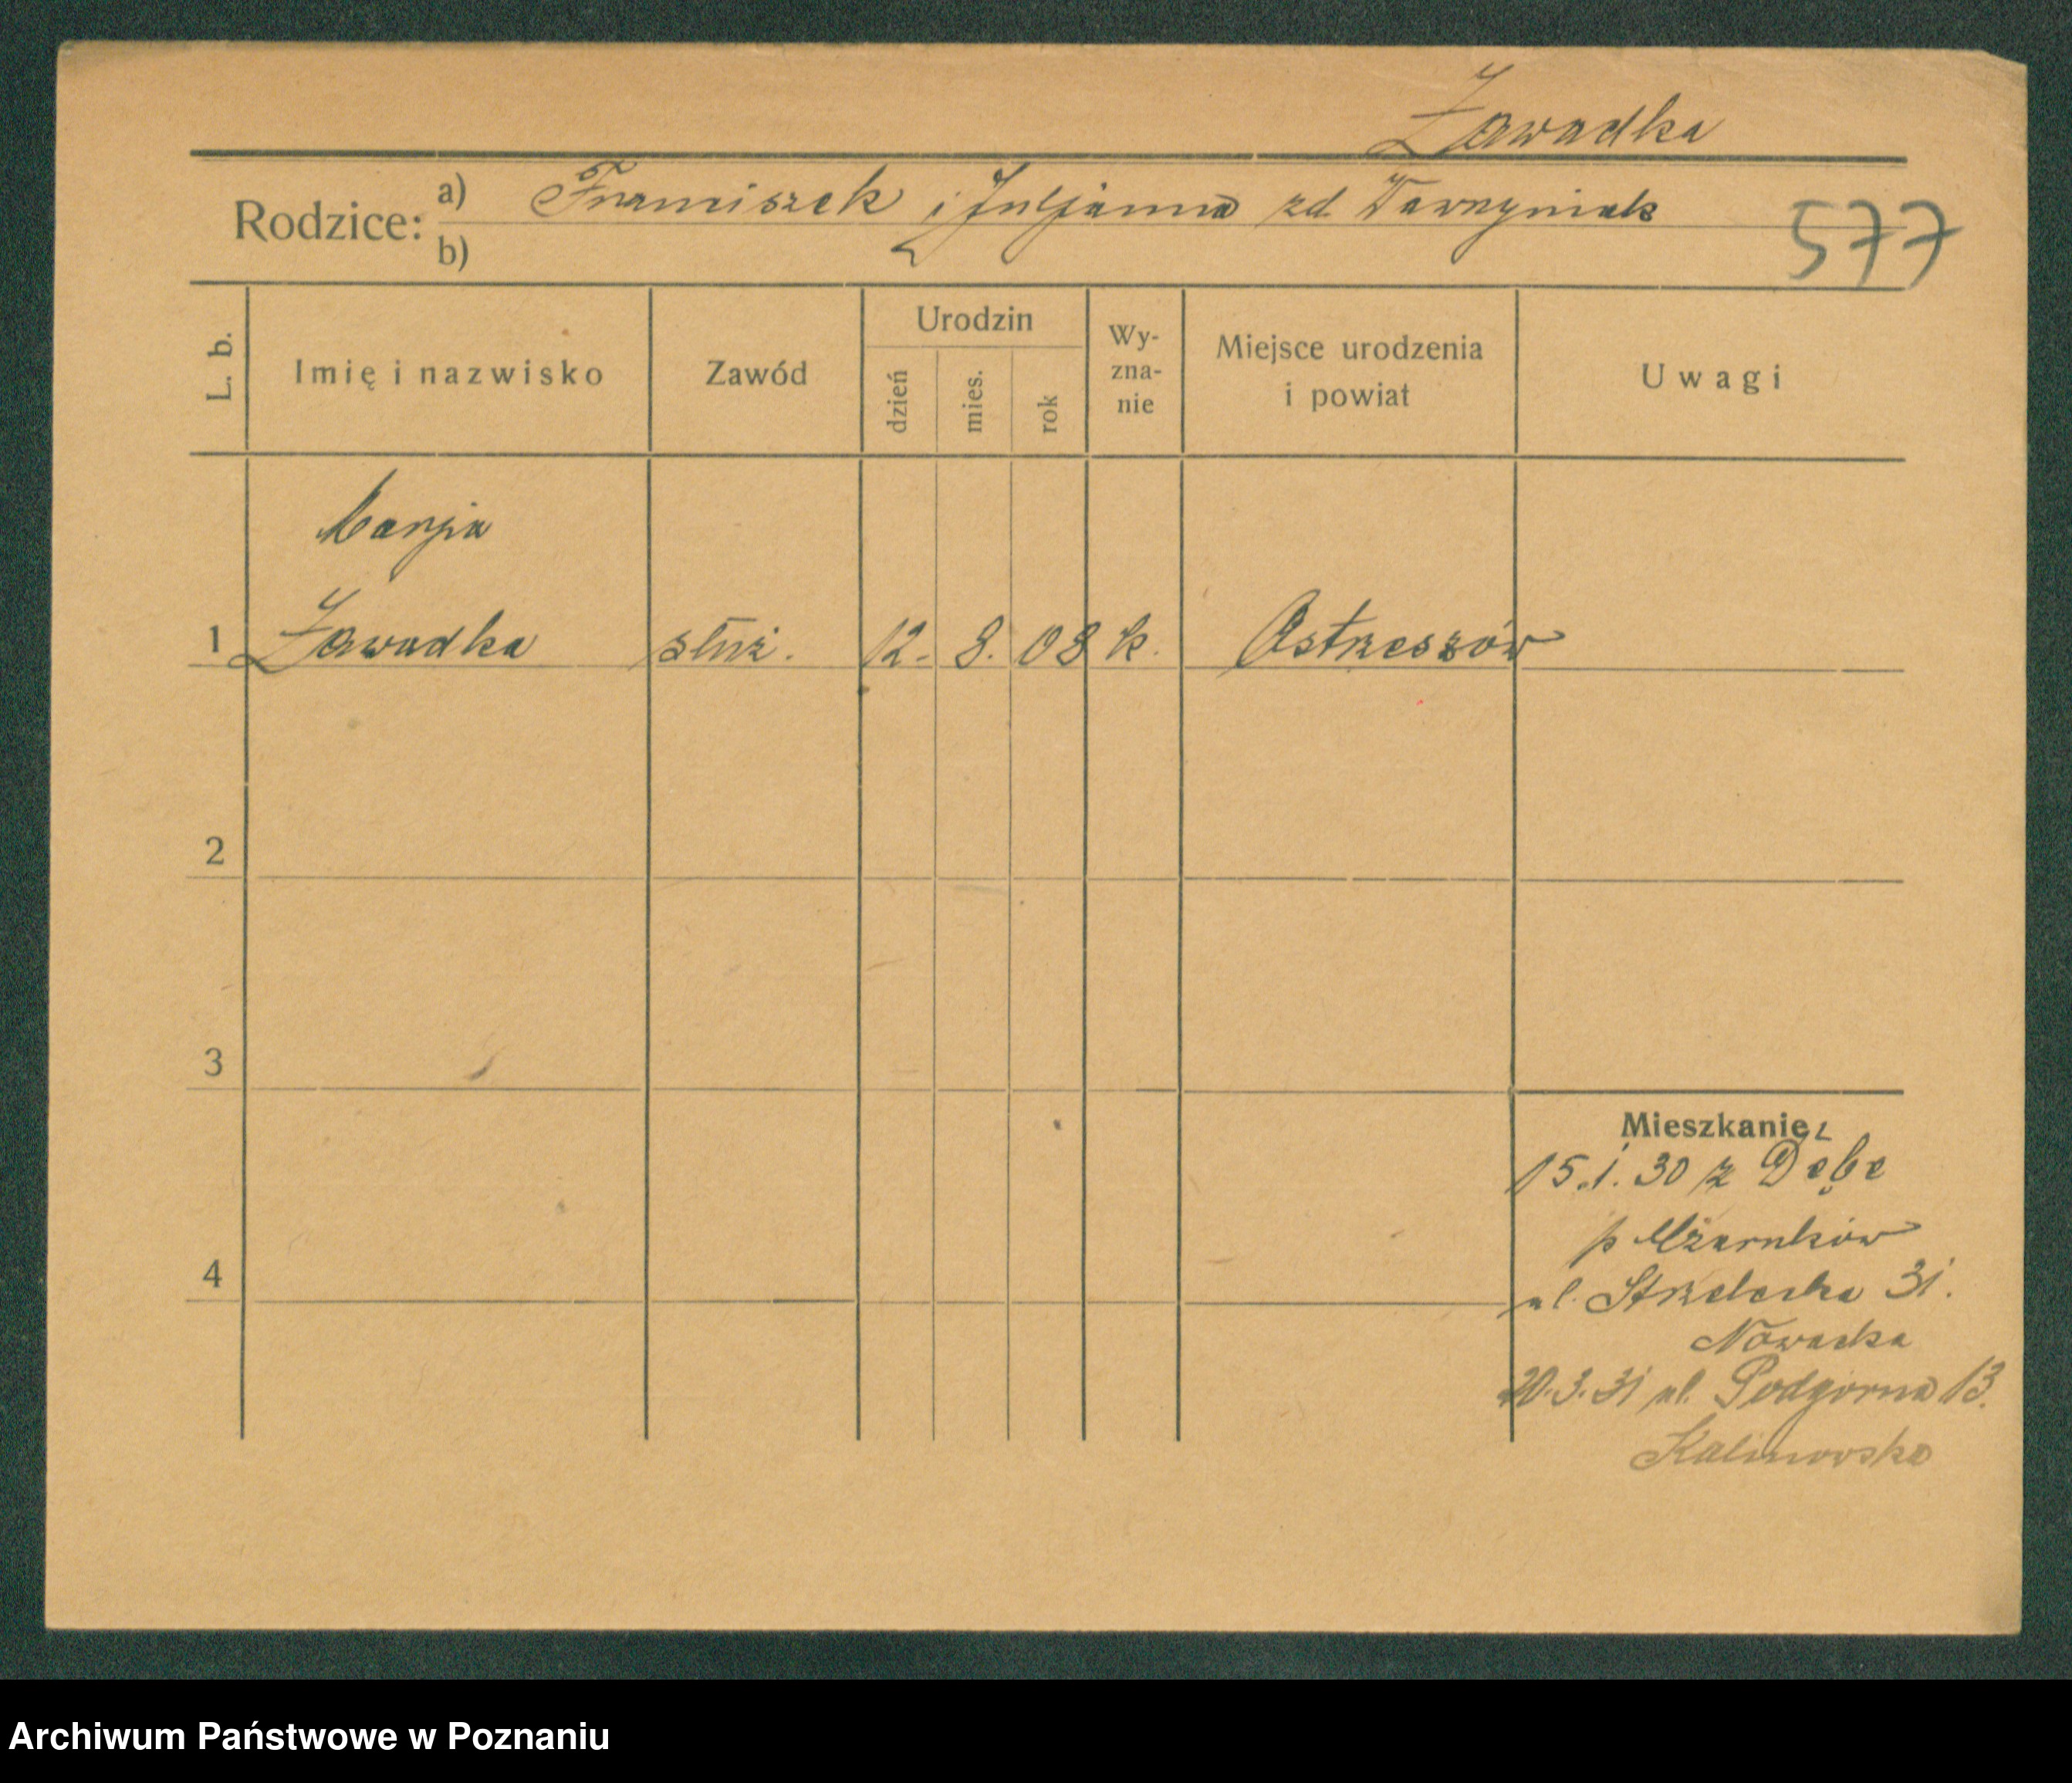 Zawadka
Rodzice: a) Franciszek i Juljanna zd Wawrzyniak
b)
577
L. b. Imię i nazwisko Zawód Urodzin dzień mies. rok Wy-zna-nie Miejsce urodzenia i powiat Uwagi
Marja
1 Zawadka służ. 12. 8. 08 k. Ostrzeszów
2
3
Mieszkanie
15.1.30 z Dębe
p Czarnków
4
ul. Strzelecka 31.
Nowacka
20.3.31 ul. Podgórna 13.
Kalinowska
Archiwum Państwowe w Poznaniu